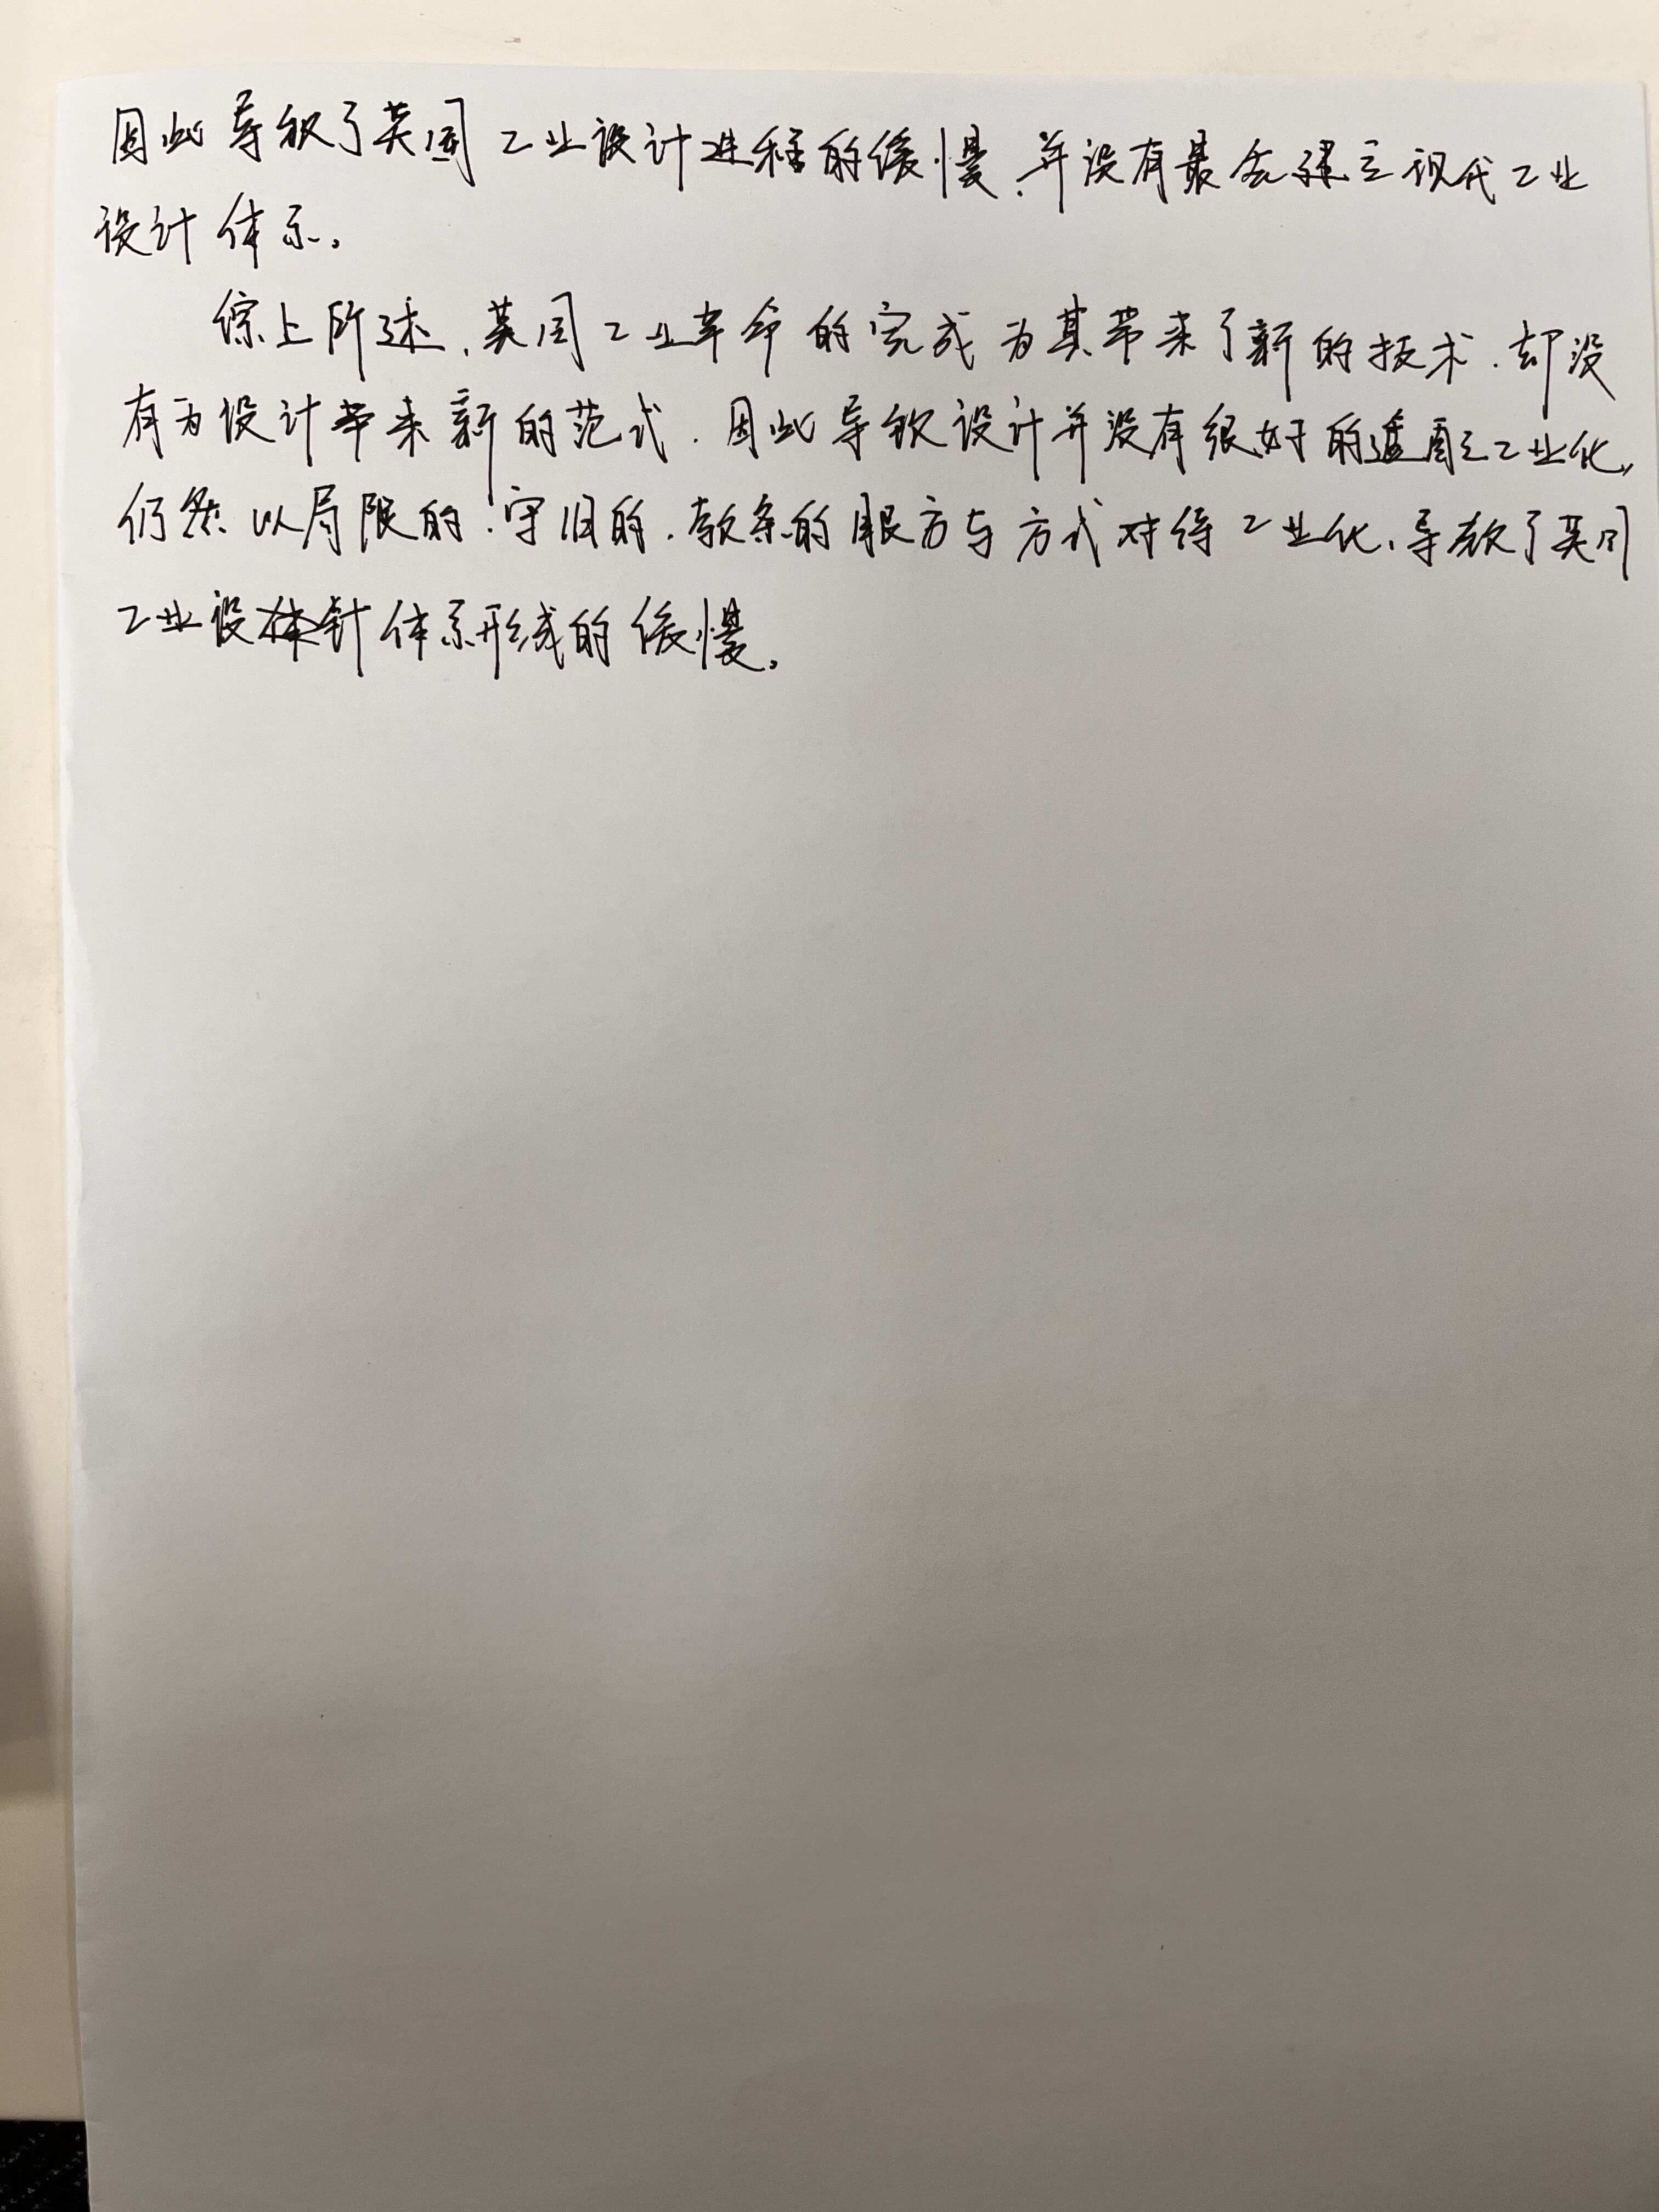 因此导致了英国工业设计进程的缓慢,并没有最先建立现代工业
设计体系。
综上所述,英国工业革命的完成为其带来了新的技术,却没
有为设计带来新的范式,因此导致设计并没有很好的适配工业化,
仍然以局限的、守旧的、教条的眼光与方式对待工业化,导致了英国
工业设计体系形成的缓慢。